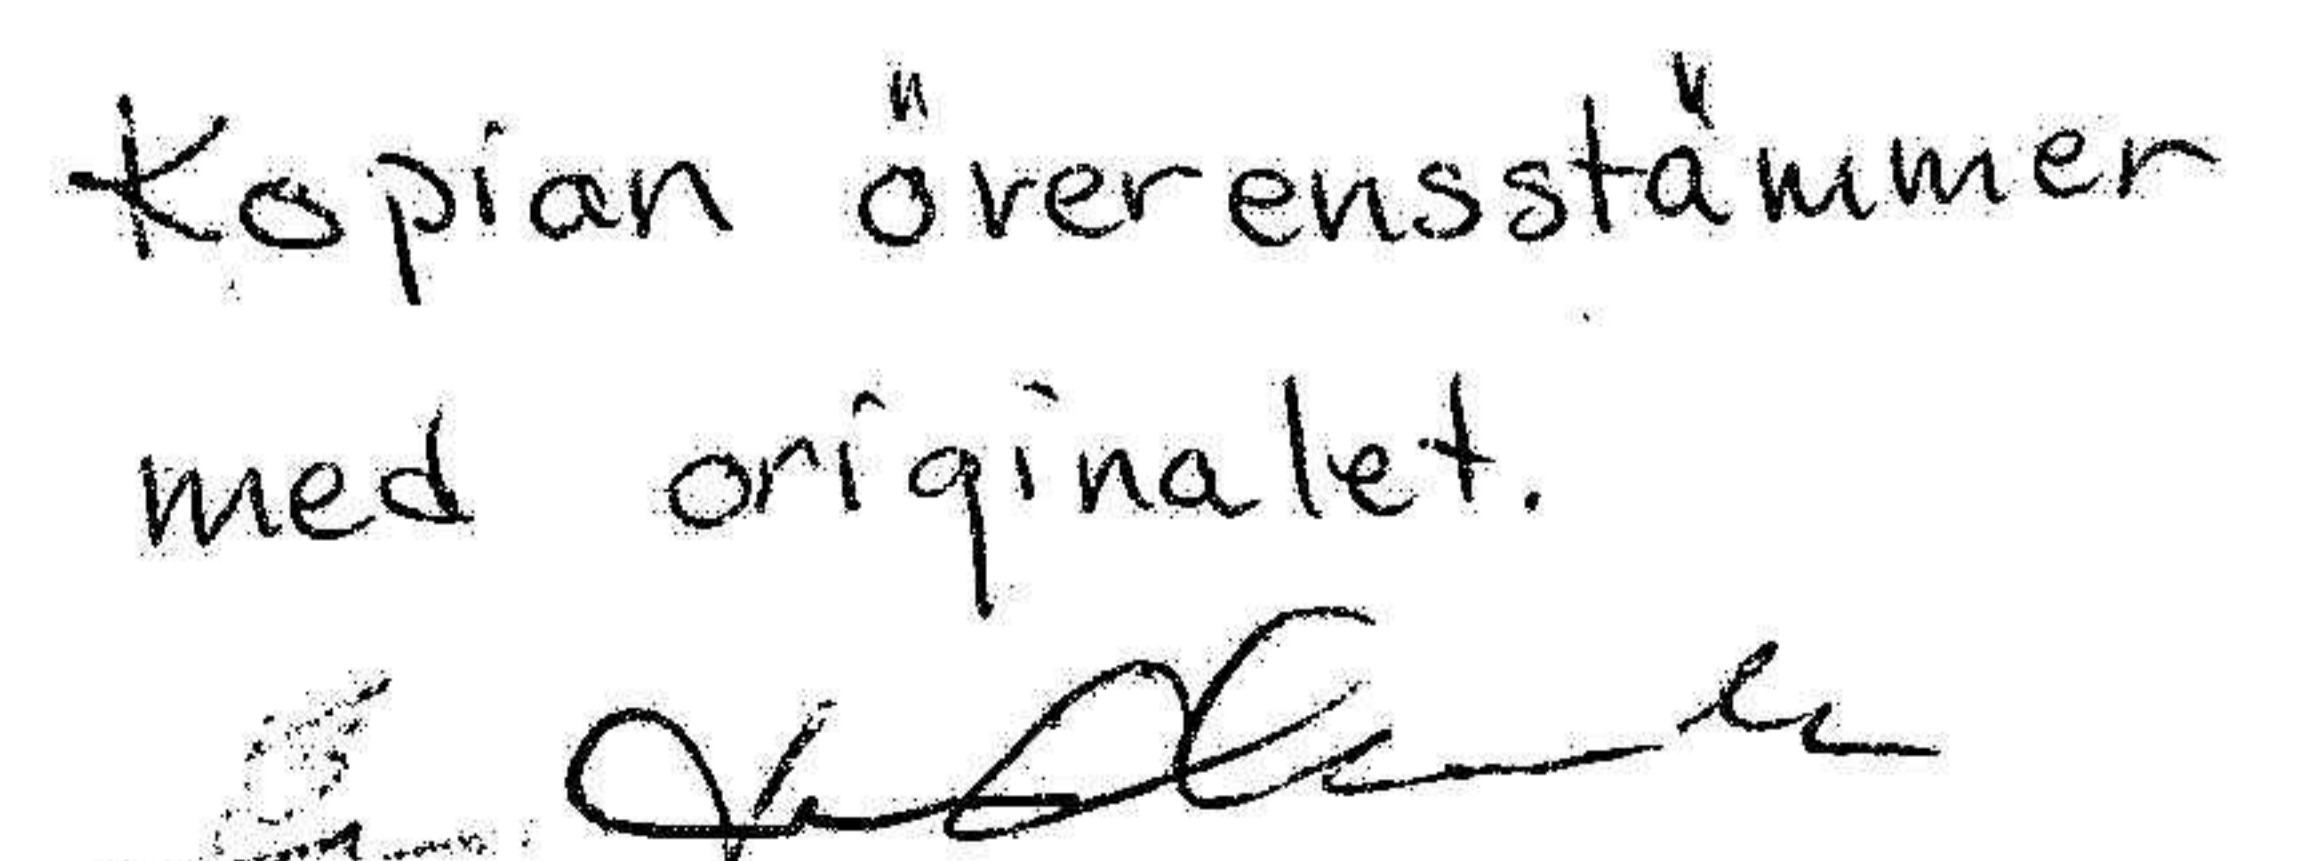 Kopian överensstämmer
med originalet.